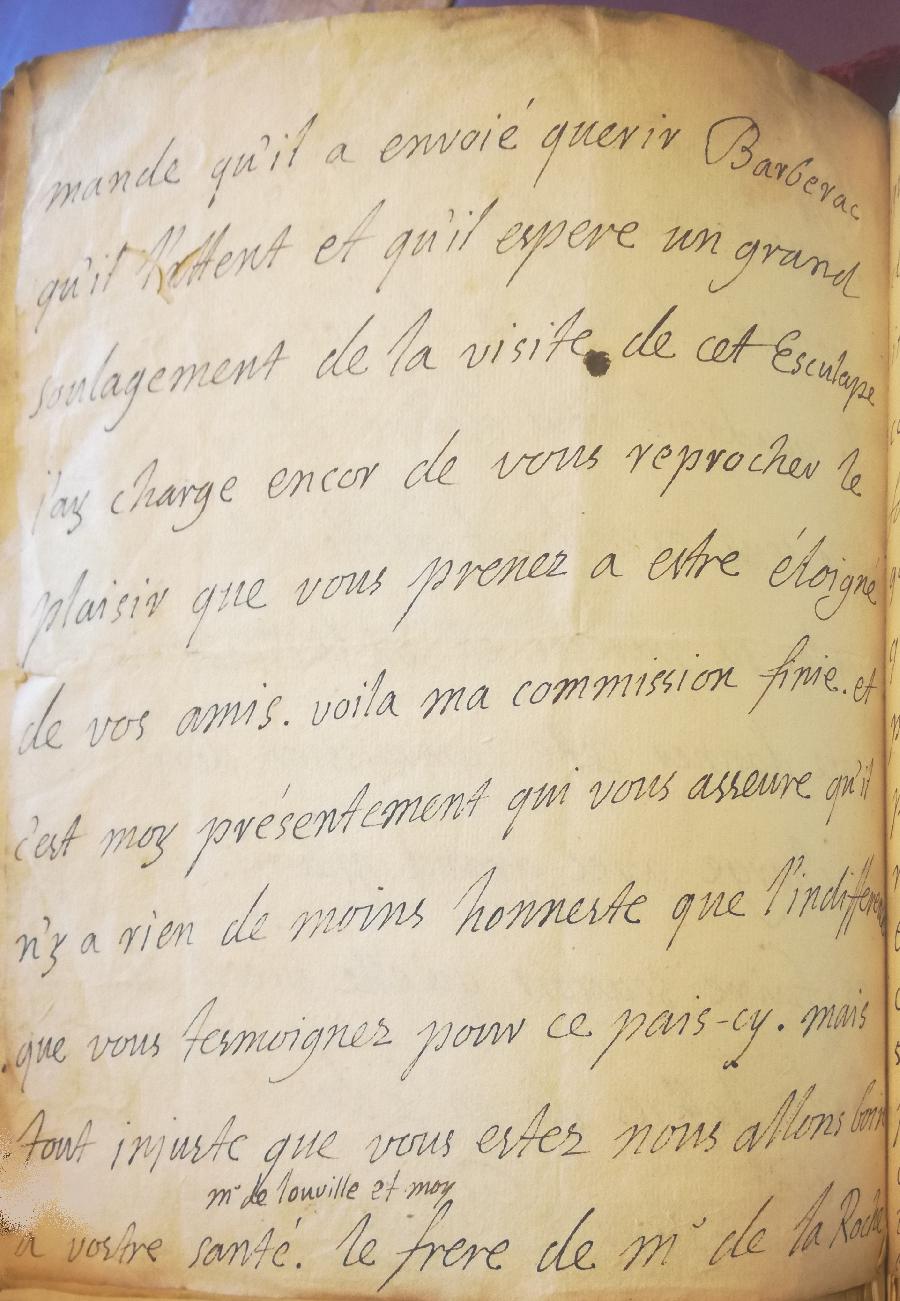 mande qu'il a envoié querir Barberac
qu'il l'attent et qu'il espere un grand
soulagement de la visite de cet Esculape
j'ay charge encor de vous reprocher le
plaisir que vous prenez a estre éloigné
de vos amis. voila ma commission finie. et
c'est moy présentement qui vous asseure qu'il
n'y a rien de moins honneste que
que vous tesmoignez pour ce pais-cy. mais
tout injuste que vous estez nous allons boire
mr de louville et moy
a vostre santé. le frere de mr de la Roche